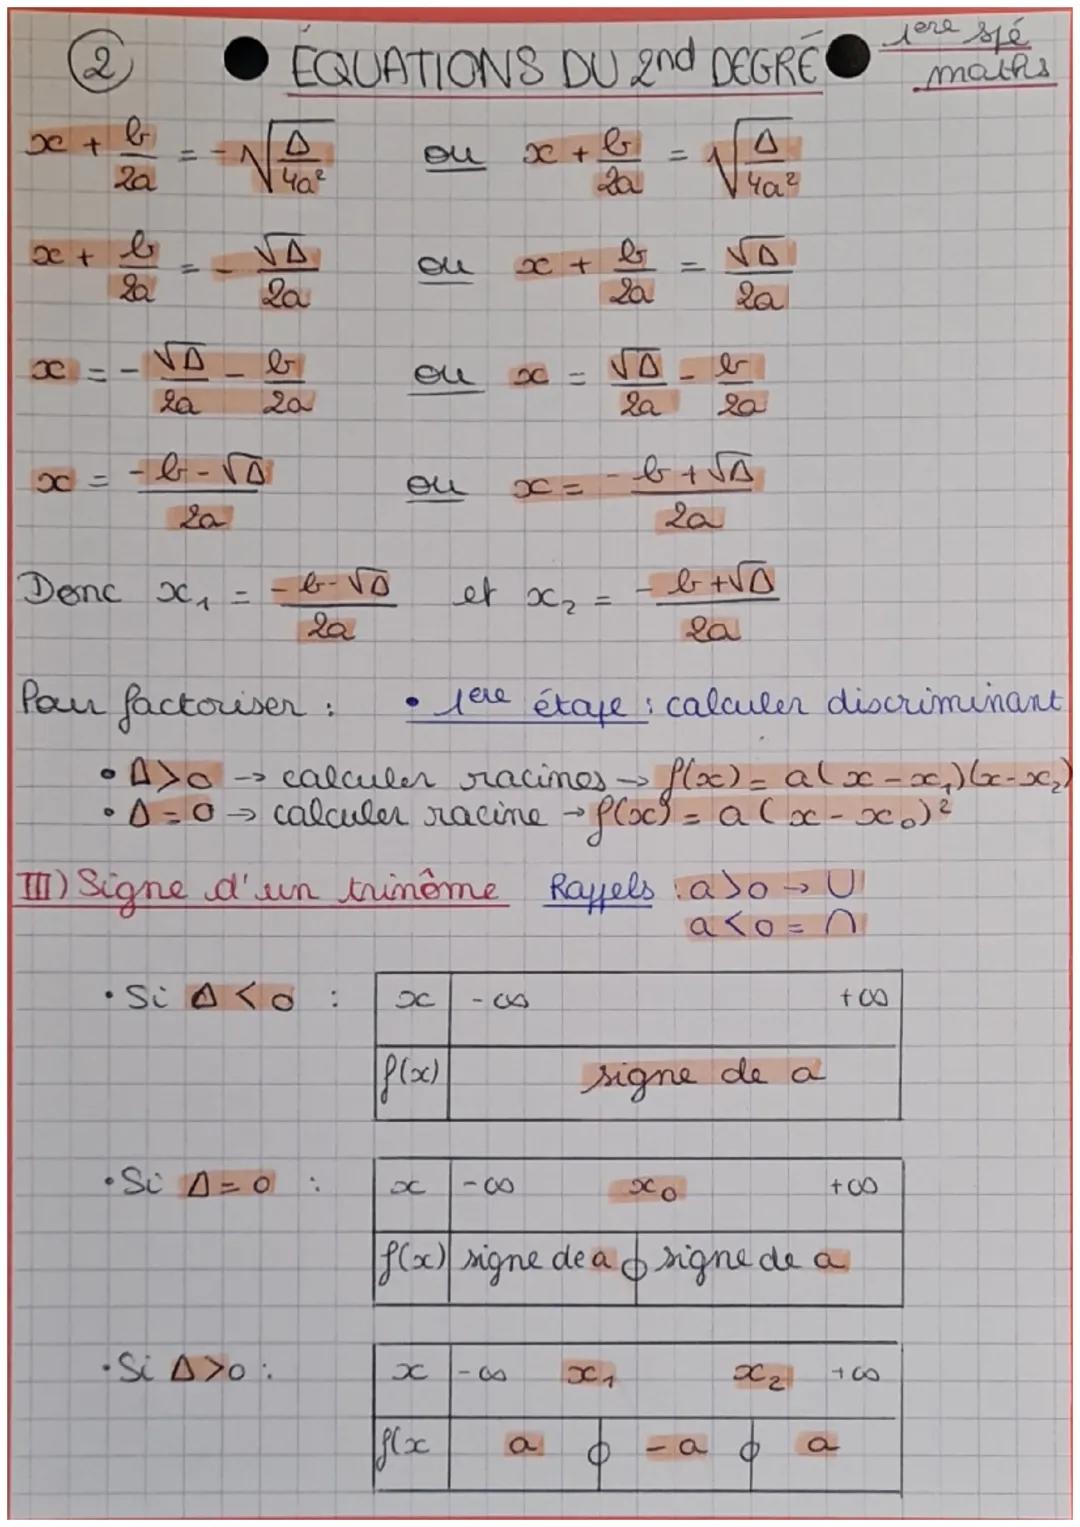 2 ÉQUATIONS DU 2nd DEGRÉ 1ere spé maths
x + b/2a = -√(Δ/4a²) ou x + b/2a = √(Δ/4a²)
x + b/2a = - √Δ/2a ou x + b/2a = √Δ/2a
x = - √Δ/2a - b/2a ou x = √Δ/2a - b/2a
x = (-b-√Δ)/2a ou x = (-b+√Δ)/2a
Donc x₁ = (-b-√Δ)/2a et x₂ = (-b+√Δ)/2a
Pour factoriser : • 1ere étape : calculer discriminant
• Δ>0 → calculer racines → f(x) = a(x-x₁)(x-x₂)
• Δ=0 → calculer racine → f(x) = a(x-x₀)²
III) Signe d'un trinôme Rappels : a>0 → ∪
a<0 = ∩
• Si Δ<0 : x -∞ +∞
f(x) signe de a
• Si Δ=0 : x -∞ x₀ +∞
f(x) signe de a 0 signe de a
• Si Δ>0 : x -∞ x₁ x₂ +∞
f(x a 0 -a 0 a